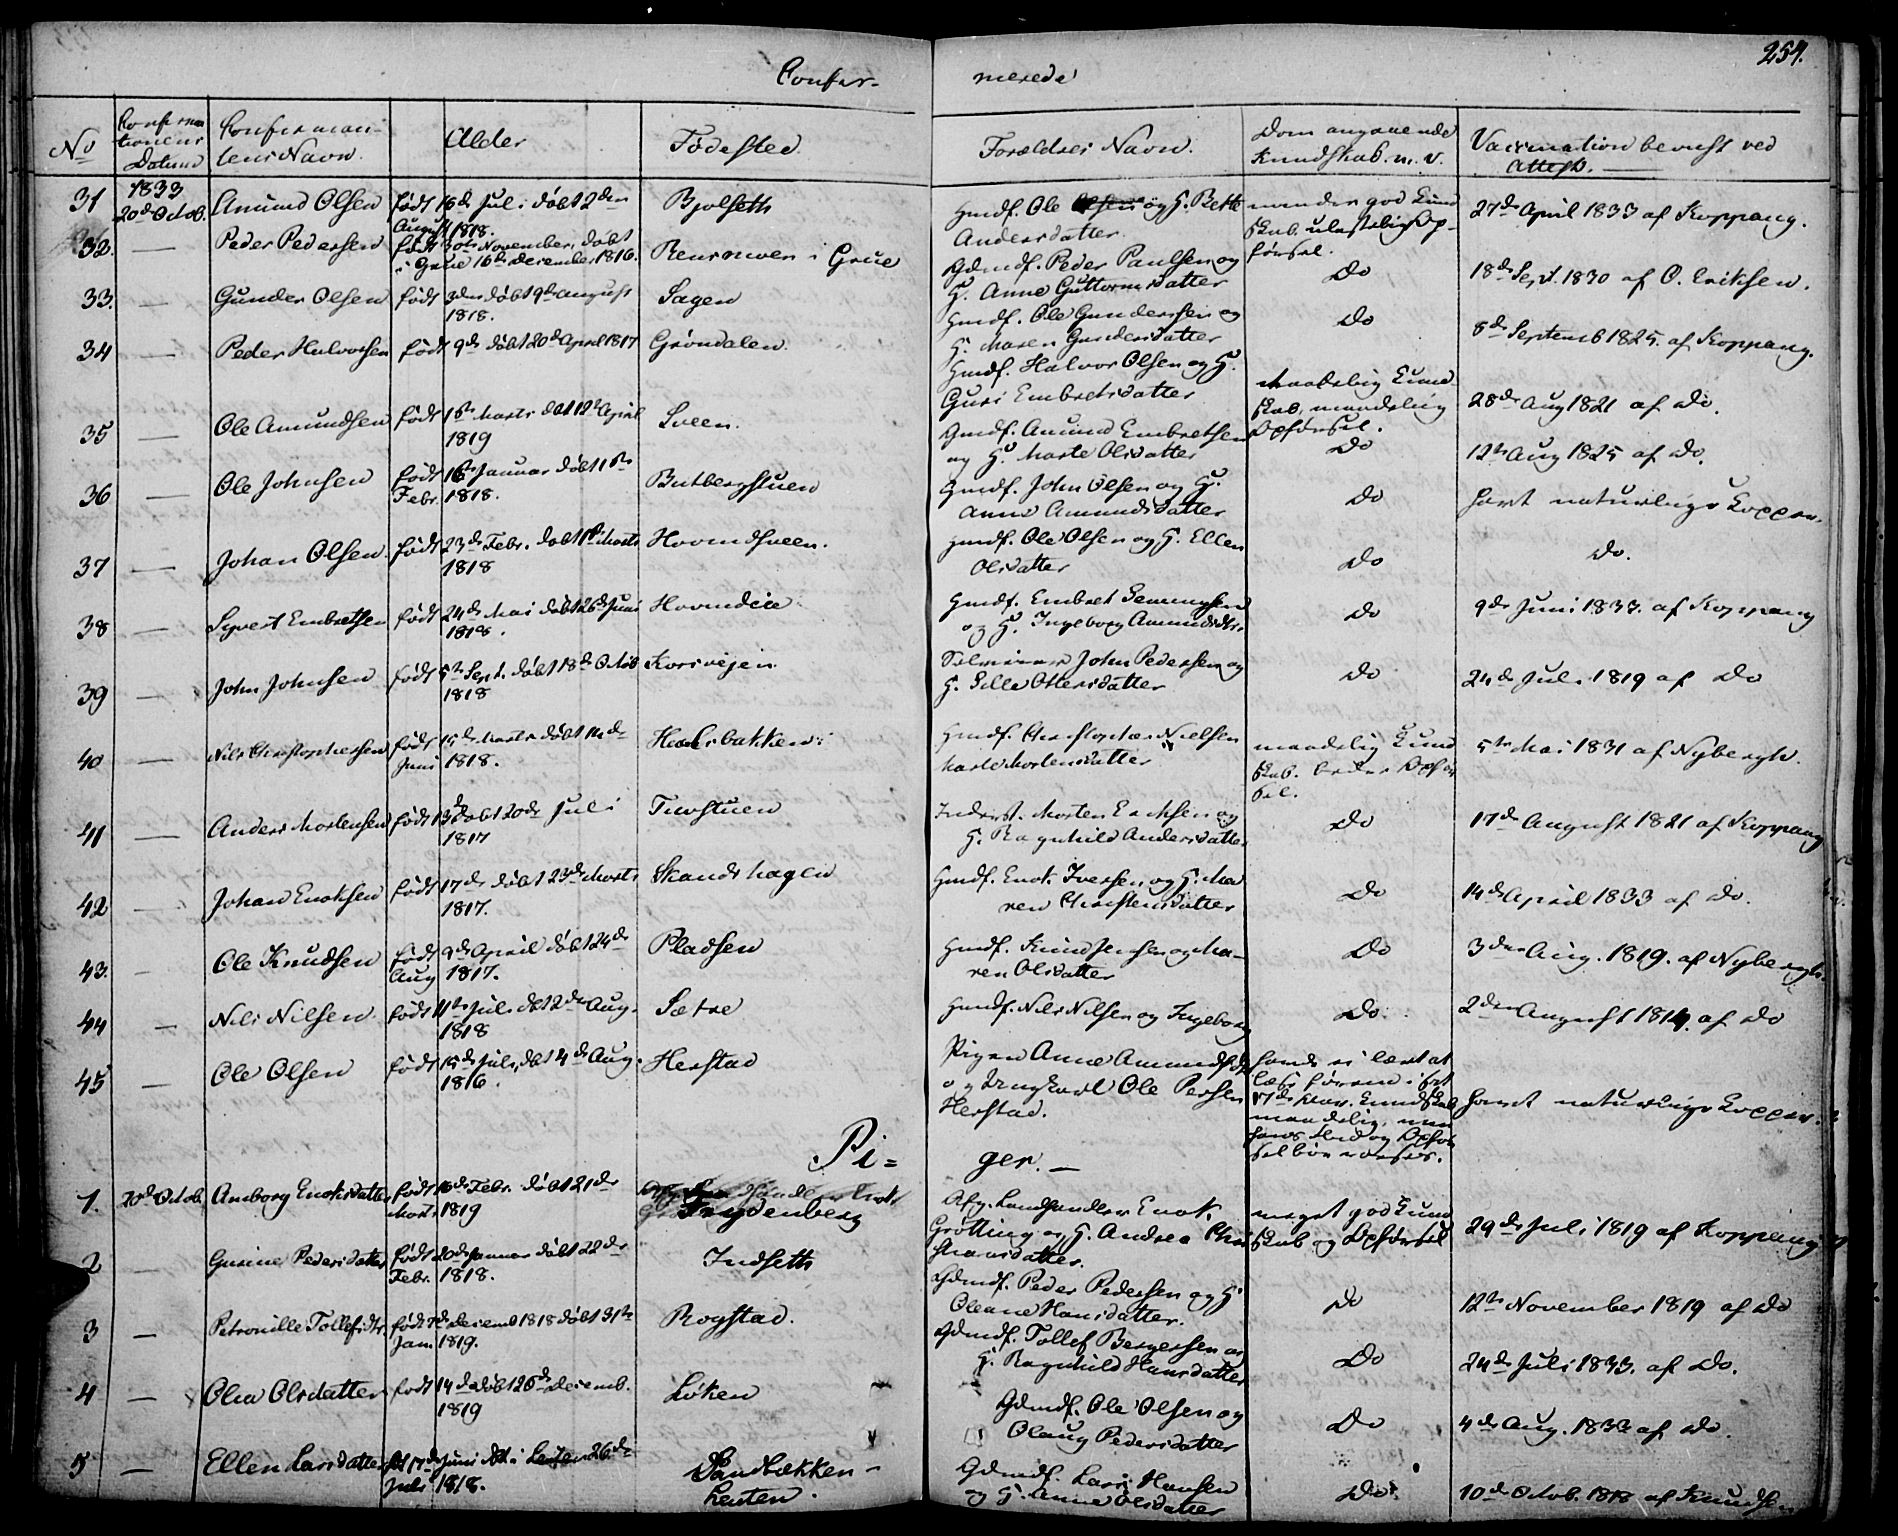 254.
Confir- merede
No
Confirmationens Datum
Confirmantens Navn.
Alder
Fødested
Forældres Navn.
Dom angaaende Kundskab m. v.
Vaccination beviist ved Attest.
31 1833 20de Octob. Amund Olsen født 16de Juli døbt 2den August 1818. Bjølseth Hmdf. Ole og H. Berthe Andersdatter. god Kundskab ulastelig Opførsel. 27de April 1833 af Koppang.
32. — Peder Pedersen født 30te November, døbt i Grue 16de December 1816. i Grue Gdmdf. Peder Paulsen og H. Anne Guttormsdatter Do 18de Sept. 1830 af O. Eriksen.
33. — Gunder Olsen født 3die døbt 9de August 1818. Sagen Hmdf. Ole Gundersen og H. Maren Gundersdatter Do 8de Septemb 1825. af Koppang.
34 — Peder Halvorsen født 9de døbt 20de April 1817 Grøndalen Hmdf. Halvor Olsen og H. Guri Embretsdatter maadelig Kundskab, maadelig Opførsel. 28de Aug 1821 af Do.
35 — Ole Amundsen født 1ste Marts døbt 12te April 1819 Sveen. Hmdf. Amund Embretsen og H. Marte Olsdatter Do 12te Aug 1825 af Do.
36 — Ole Johnsen født 16de Januar døbt 1ste Febr. 1818. Butbergstuen Hmdf. John Olsen og H. Anne Amundsdatter Do havt naturlige Kopper.
37 — Johan Olsen født 23de Febr. døbt Marts 1818 Hovindsveen. Hmdf. Ole Olsen og H. Ellen Olsdatter Do Do.
38 — Syvert Embretsen født 24de Mai døbt 26de Juni 1818. Hovindeie Hmdf. Embret Semmingsen og H. Ingeborg Amundsdtr. Do 9de Juni 1833. af Koppang
39 — John Johnsen født 5te Sept. døbt 18de Octob 1818 Korsvejen John Pedersen og H. Sille Ottersdatter Do 24de Juli 1819 af Do
40 — Nils Christophersen født 15de Marts døbt 14de Juni 1818. Hmdf. Christopher Nielsen Marte Mortensdatter maadelig Kundskab. bedre Opførsel. 5te Mai 1831 af Nybergh.
41 — Anders Mortensen født 13de døbt 20de Juli 1817 Tuvstuen Inderst. Morten Eriksen og H. Ragnhild Andersdatter Do 17de August 1821 af Koppang
42 — Johan Enoksen født 17de døbt 23de Marts 1817. Skandshagen Hmdf. Enok Iversen og H. Maren Christensdatter Do 14de April 1833 af Do.
43. — Ole Knudsen født 9de April døbt 24de Aug 1817. Pladsen Hmdf. Knud Jensen og Maren Olsdatter Do 3die Aug. 1819. af Nybergh.
44 — Nils Nilsen født 11te Juli døbt 2den Aug. 1818 Sætre Hmdf. Nils Nilsen og Ingeborg Do 2den August 1819. af Do
45 — Ole Olsen født 15de Juli døbt 4de Aug. 1816. Herstad Pigen Anne Amundsdtr og Ungkarl Ole Persen Herstad. havde ei lært at læse førend i sit 17de Aar. Kundskab maadelig, men hans Flid og Opførsel bør roses. havt naturlige Kopper.
Pi= ger. —
1. 20de Octob. Amborg Enoksdatter født 16de Febr. døbt 21de Marts 1819 Frydenberg Afg. Landhandler Enok Grøtting og H. Andrea Christiansdatter. meget god Kundskab og Opførsel 29de Juli 1819 af Koppang
2 — Gusine Pedersdatter født 20de Januar døbt 22de Febr. 1818. Indseth Gdmdf. Peder Pedersen og H. Oleane Hansdatter. Do 12te November 1819 af Do
3 — Petronille Tollefsdtr. født 7de Decemb 1818 døbt 31te Jan. 1819. Rogstad. Gdmdf. Tollef Bergersen og H. Ragnhild Hansdatter Do 24de Juli 1833. af Do.
4 — Olea Olsdatter født 14de døbt 26de Decemb. 1819 Løken Gdmdf. Ole Olsen og Olaug Pedersdatter Do 4de Aug. 1833 af Do.
5 — Ellen Larsdatter fdt 17de Juni døbt i Løiten 26de Juli 1818. Sandbækken Leuten. Gdmdf. Lars Hansen og H. Anne Olsdatter Do 10de Octob. 1818 af Knudsen